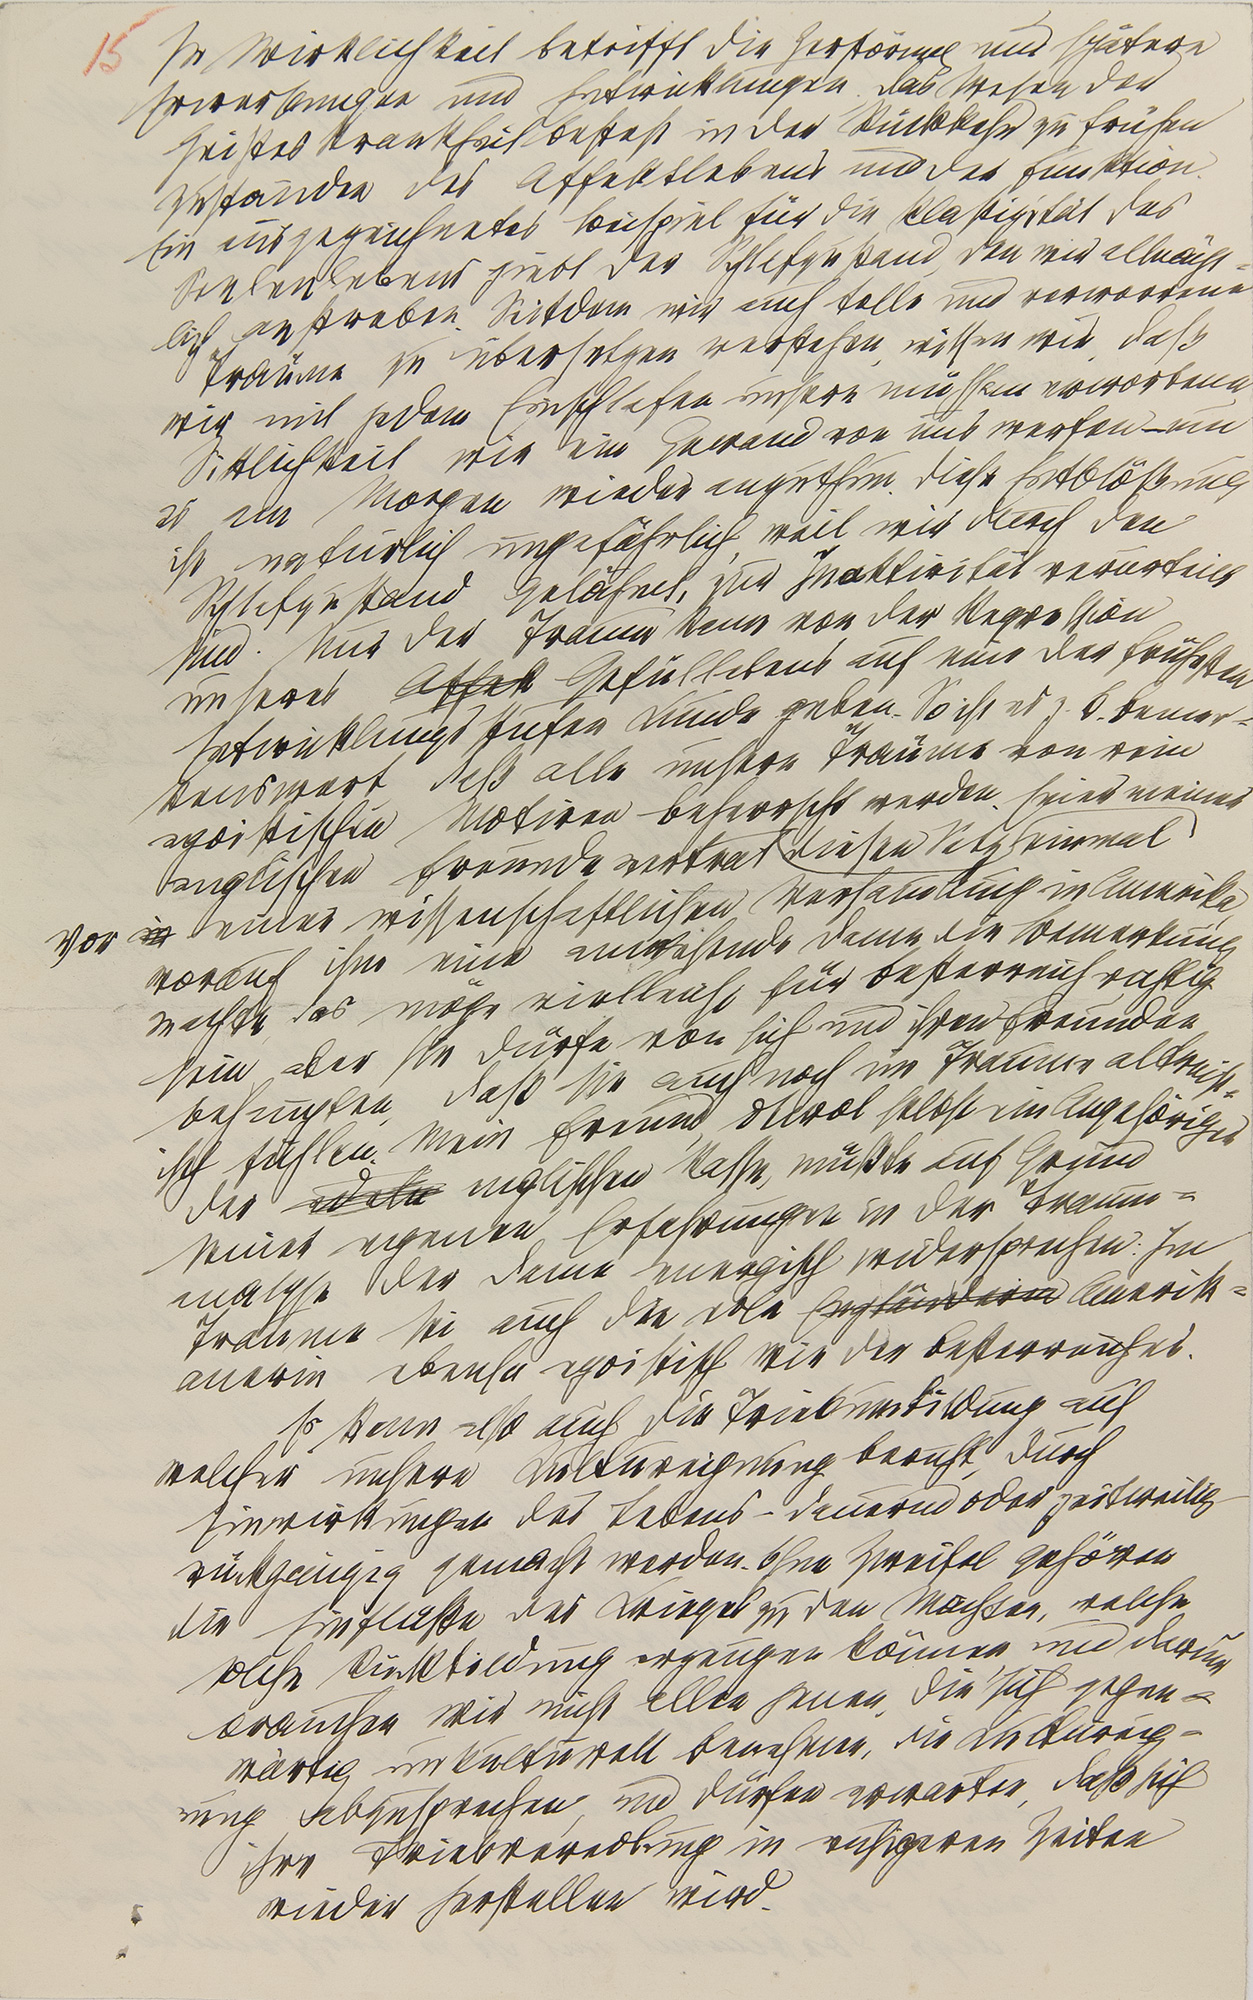 15
In Wirklichkeit betrifft die Zerstörung nur spätere
Erwerbungen und Entwicklungen. Das Wesen der
Geisteskrankheit besteht in der Rückkehr zu frühern
Zuständen des Affektlebens und der Funktion.
Ein ausgezeichnetes Beispiel für die Plastizität des
Seelenlebens giebt der Schlafzustand, den wir allnächt=
lich anstreben. Seitdem wir auch tolle und verworrene
Träume zu übersetzen verstehen, wissen wir, daß
wir mit jedem Einschlafen unsere mühsam erworbene
Sittlichkeit wie ein Gewand von uns werfen – um
es am Morgen wieder anzuthun. Diese Entblößung
ist natürlich ungefährlich, weil wir durch den
Schlafzustand gelähmt, zur Inaktivität verurteilt
sind. Nur der Traum kann von der Regression
unseres Affek Gefüllebens auf eine der frühesten
Entwicklungsstufen Kunde geben. So ist es z. B. bemer=
kenswert, daß alle unsere Träume von rein
egoistischen Motiven beherrscht werden. Einer meiner
englischen Freunde vertrat diesen Satz einmal
vor in einer wissenschaftlichen Versammlung in Amerika,
worauf ihm eine anwesende Dame die Bemerkung
machte, das möge vielleicht für Oesterreich richtig
sein, aber sie dürfe von sich und ihren Freunden
behaupten, daß sie auch noch im Traume altruist=
isch fühlen. Mein Freund, obwol selbst ein Angehöriger
der edeln englischen Rasse, mußte auf Grund
seiner eigenen Erfahrungen in der Traum=
analyse der Dame energisch widersprechen: Im
Traume sei auch die edle Engländerin Amerik=
anerin ebenso egoistisch wie der Oesterreicher.
Es kann also auch die Triebumbildung auf
welcher unsere Kultureignung beruht, durch
Einwirkungen des Lebens – dauernd oder zeitweilig
rückgängig gemacht werden. Ohne Zweifel gehören
die Einflüße des Krieges zu den Mächten, welche
solche Rückbildung erzeugen können und darum
brauchen wir nicht allen jenen, die sich gegen=
wärtig unkulturell benehmen, die Kultureig=
nung abzusprechen, und dürfen erwarten, daß sich
ihre Triebveredlung in ruhigeren Zeiten
wieder herstellen wird.